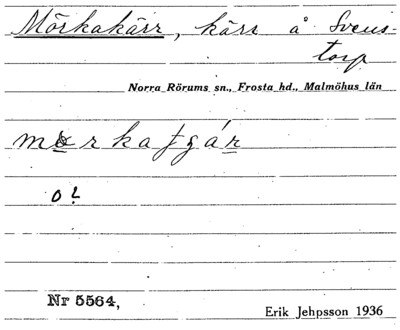 Mörkakärr, kärr å Svens-
torp
Norra Rörums sn., Frosta hd., Malmöhus län
o?
Nr 5564,
Erik Jehpsson 1936